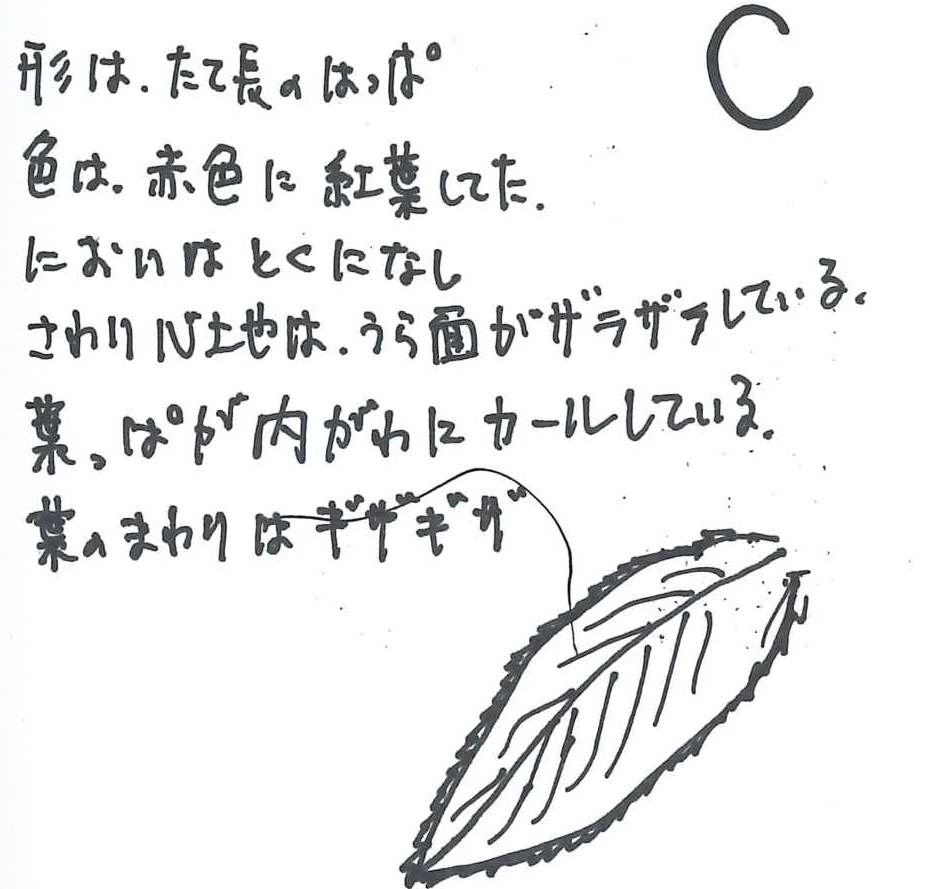 C
形は、たて長のはっぱ
色は、赤色に紅葉してた。
においはとくになし
さわり心地は、うら面がザラザラしている。
葉っぱが内がわにカールしている。
葉のまわりはギザギザ